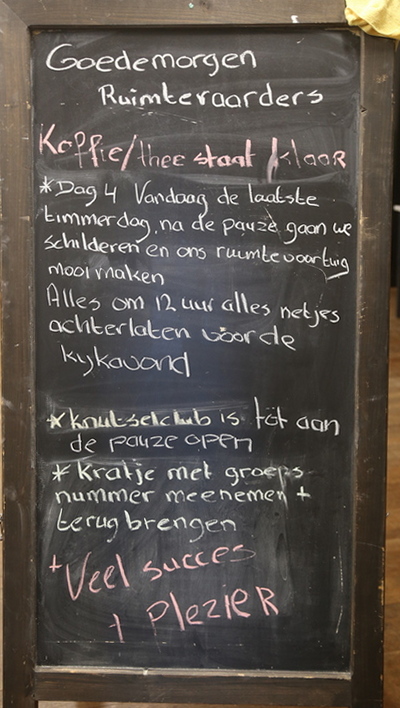 Goedemorgen
Ruimtevaarders
Koffie/thee staat klaar
*Dag 4 Vandaag de laatste
timmerdag, na de pauze gaan we
schilderen en ons ruimtevoertuig
mooi maken
Alles om 12 uur alles netjes
achterlaten voor de
kykavond
*knutselclub is tot aan
de pauze open
*kratje met groeps
nummer meenemen +
terug brengen
+Veel succes
+ PlezieR